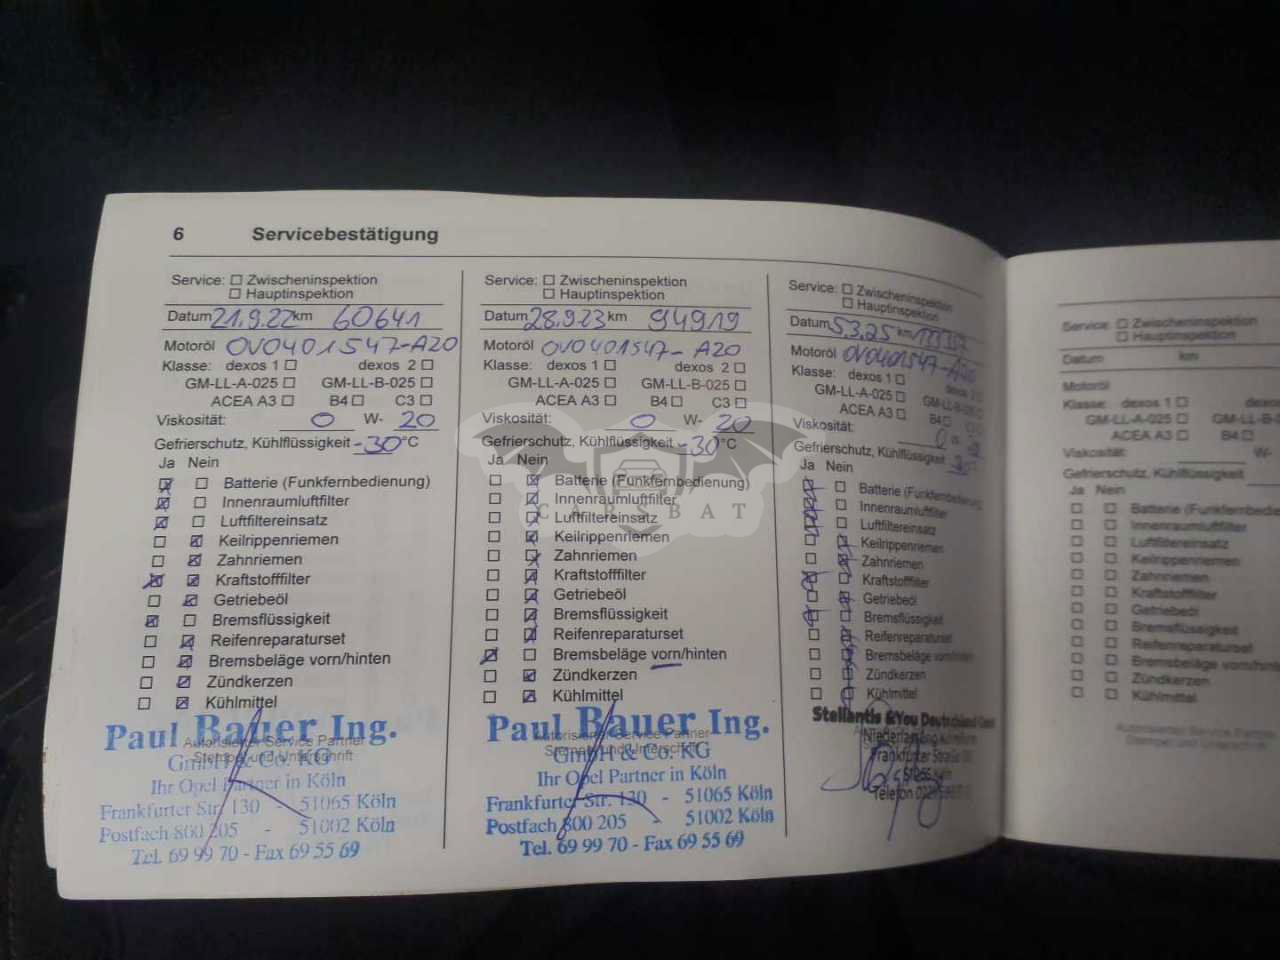 6 Servicebestätigung
Service: Zwischeninspektion
Hauptinspektion
Datum 21.9.22 km 60641
Motoröl OV0401547-A20
Klasse: dexos 1 dexos 2
GM-LL-A-025 GM-LL-B-025
ACEA A3 B4 C3
Viskosität: 0 W- 20
Gefrierschutz, Kühlflüssigkeit -30 °C
Ja Nein
Batterie (Funkfernbedienung)
Innenraumluftfilter
Luftfiltereinsatz
Keilrippenriemen
Zahnriemen
Kraftstofffilter
Getriebeöl
Bremsflüssigkeit
Reifenreparaturset
Bremsbeläge vorn/hinten
Zündkerzen
Kühlmittel
Autorisierter Service Partner
Stempel und Unterschrift
Paul Bauer Ing.
GmbH & Co. KG
Ihr Opel Partner in Köln
Frankfurter Str. 130 - 51065 Köln
Postfach 800 205 - 51002 Köln
Tel. 69 99 70 - Fax 69 55 69
Service: Zwischeninspektion
Hauptinspektion
Datum 28.9.23 km 94919
Motoröl OV0401547-A20
Klasse: dexos 1 dexos 2
GM-LL-A-025 GM-LL-B-025
ACEA A3 B4 C3
Viskosität: 0 W- 20
Gefrierschutz, Kühlflüssigkeit -30 °C
Ja Nein
Batterie (Funkfernbedienung)
Innenraumluftfilter
Luftfiltereinsatz
Keilrippenriemen
Zahnriemen
Kraftstofffilter
Getriebeöl
Bremsflüssigkeit
Reifenreparaturset
Bremsbeläge vorn/hinten
Zündkerzen
Kühlmittel
Autorisierter Service Partner
Stempel und Unterschrift
Paul Bauer Ing.
GmbH & Co. KG
Ihr Opel Partner in Köln
Frankfurter Str. 130 - 51065 Köln
Postfach 800 205 - 51002 Köln
Tel. 69 99 70 - Fax 69 55 69
Service: Zwischeninspektion
Hauptinspektion
Datum 5.3.25 km
Motoröl OV0401547-A20
Klasse: dexos 1 dexos 2
GM-LL-A-025 GM-LL-B-025
ACEA A3 B4
Viskosität: 0 W-
Gefrierschutz, Kühlflüssigkeit
Ja Nein
Batterie (Funkfernbedienung
Innenraumluftfilter
Luftfiltereinsatz
Keilrippenriemen
Zahnriemen
Kraftstofffilter
Getriebeöl
Bremsflüssigkeit
Reifenreparaturset
Bremsbeläge vorn/hinten
Zündkerzen
Kühlmittel
Stellantis &You Deutschland GmbH
Niederlassung
Frankfurter Straße
51065 Köln
Telefon
Service: Zwischeninspektion
Hauptinspektion
Datum km
Motoröl
Klasse: dexos 1 dexos
GM-LL-A-025 GM-LL-B
ACEA A3 B4
Viskosität: W-
Gefrierschutz, Kühlflüssigkeit
Ja Nein
Batterie (Funkfernbedie
Innenraumluftfilter
Luftfiltereinsatz
Keilrippenriemen
Zahnriemen
Kraftstofffilter
Getriebeöl
Bremsflüssigkeit
Reifenreparaturset
Bremsbeläge vorn/hinte
Zündkerzen
Kühlmittel
Autorisierter Service Partner
Stempel und Unterschrift
CARSBAT